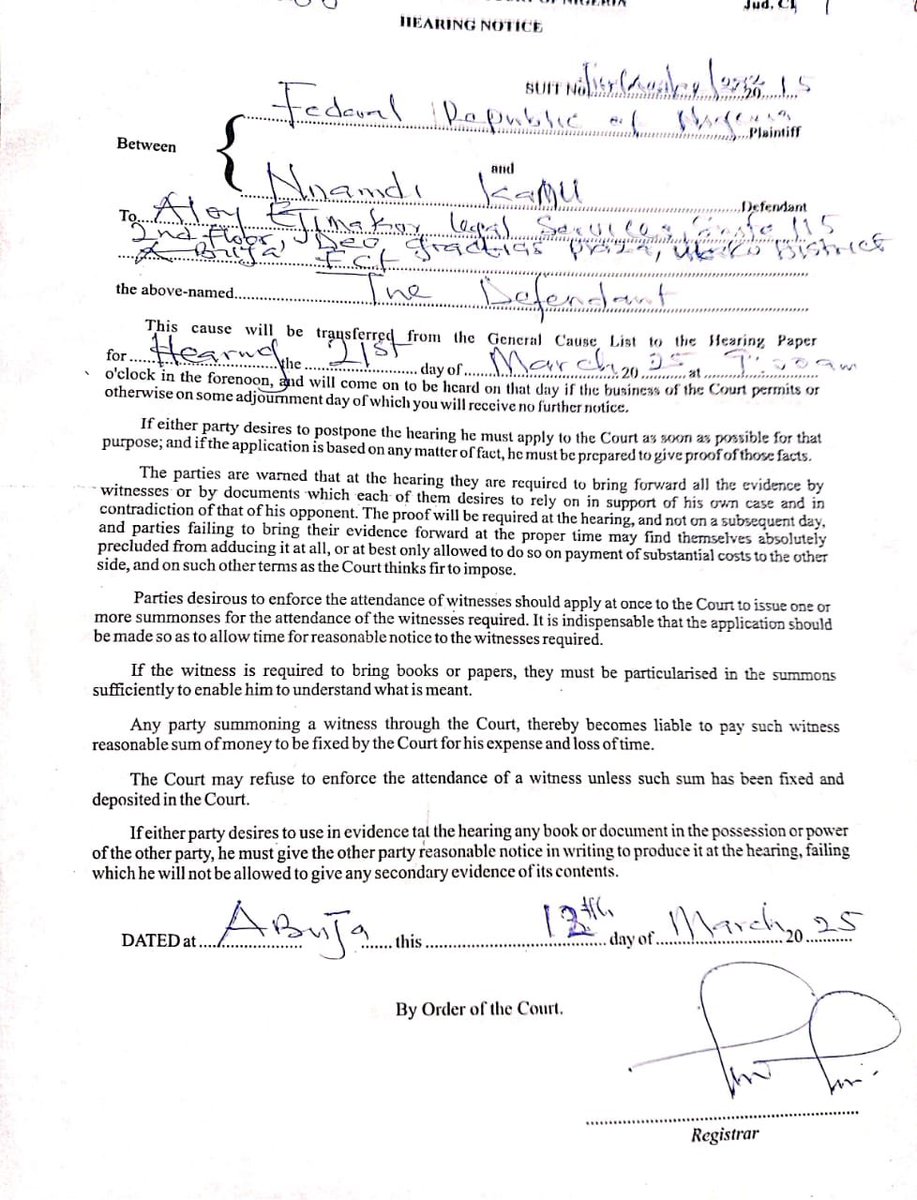 OF NIGERIA
Jud. CI,
HEARING NOTICE
SUIT No 20 15
Federal Republic of Nigeria
Plaintiff
Between
and
Nnamdi Kanu
Defendant
To Aloy Ejimakor legal Services, Suite 115
2nd floor, Deo gractias Plaza, Utako District
Abuja FCT
the above-named The Defendant
This cause will be transferred from the General Cause List to the Hearing Paper
for Hearing the 21st day of March 20 25 at 9:00am
o'clock in the forenoon, and will come on to be heard on that day if the business of the Court permits or
otherwise on some adjournment day of which you will receive no further notice.
If either party desires to postpone the hearing he must apply to the Court as soon as possible for that
purpose; and if the application is based on any matter of fact, he must be prepared to give proof of those facts.
The parties are warned that at the hearing they are required to bring forward all the evidence by
witnesses or by documents which each of them desires to rely on in support of his own case and in
contradiction of that of his opponent. The proof will be required at the hearing, and not on a subsequent day,
and parties failing to bring their evidence forward at the proper time may find themselves absolutely
precluded from adducing it at all, or at best only allowed to do so on payment of substantial costs to the other
side, and on such other terms as the Court thinks fir to impose.
Parties desirous to enforce the attendance of witnesses should apply at once to the Court to issue one or
more summonses for the attendance of the witnesses required. It is indispensable that the application should
be made so as to allow time for reasonable notice to the witnesses required.
If the witness is required to bring books or papers, they must be particularised in the summons
sufficiently to enable him to understand what is meant.
Any party summoning a witness through the Court, thereby becomes liable to pay such witness
reasonable sum of money to be fixed by the Court for his expense and loss of time.
The Court may refuse to enforce the attendance of a witness unless such sum has been fixed and
deposited in the Court.
If either party desires to use in evidence tat the hearing any book or document in the possession or power
of the other party, he must give the other party reasonable notice in writing to produce it at the hearing, failing
which he will not be allowed to give any secondary evidence of its contents.
DATED at Abuja this 13th day of March 20 25
By Order of the Court.
Registrar